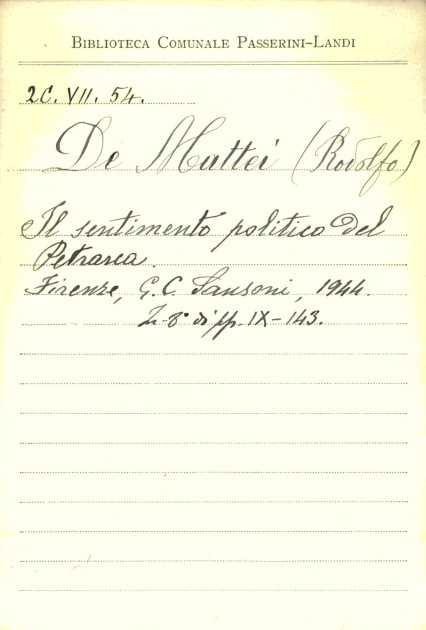 BIBLIOTECA COMUNALE PASSERINI-LANDI
2C. VII. 54.
De Mattei (Rodolfo)
Il sentimento politico del
Petrarca.
Firenze, G. C. Sansoni, 1944.
In-8° di pp. IX-143.